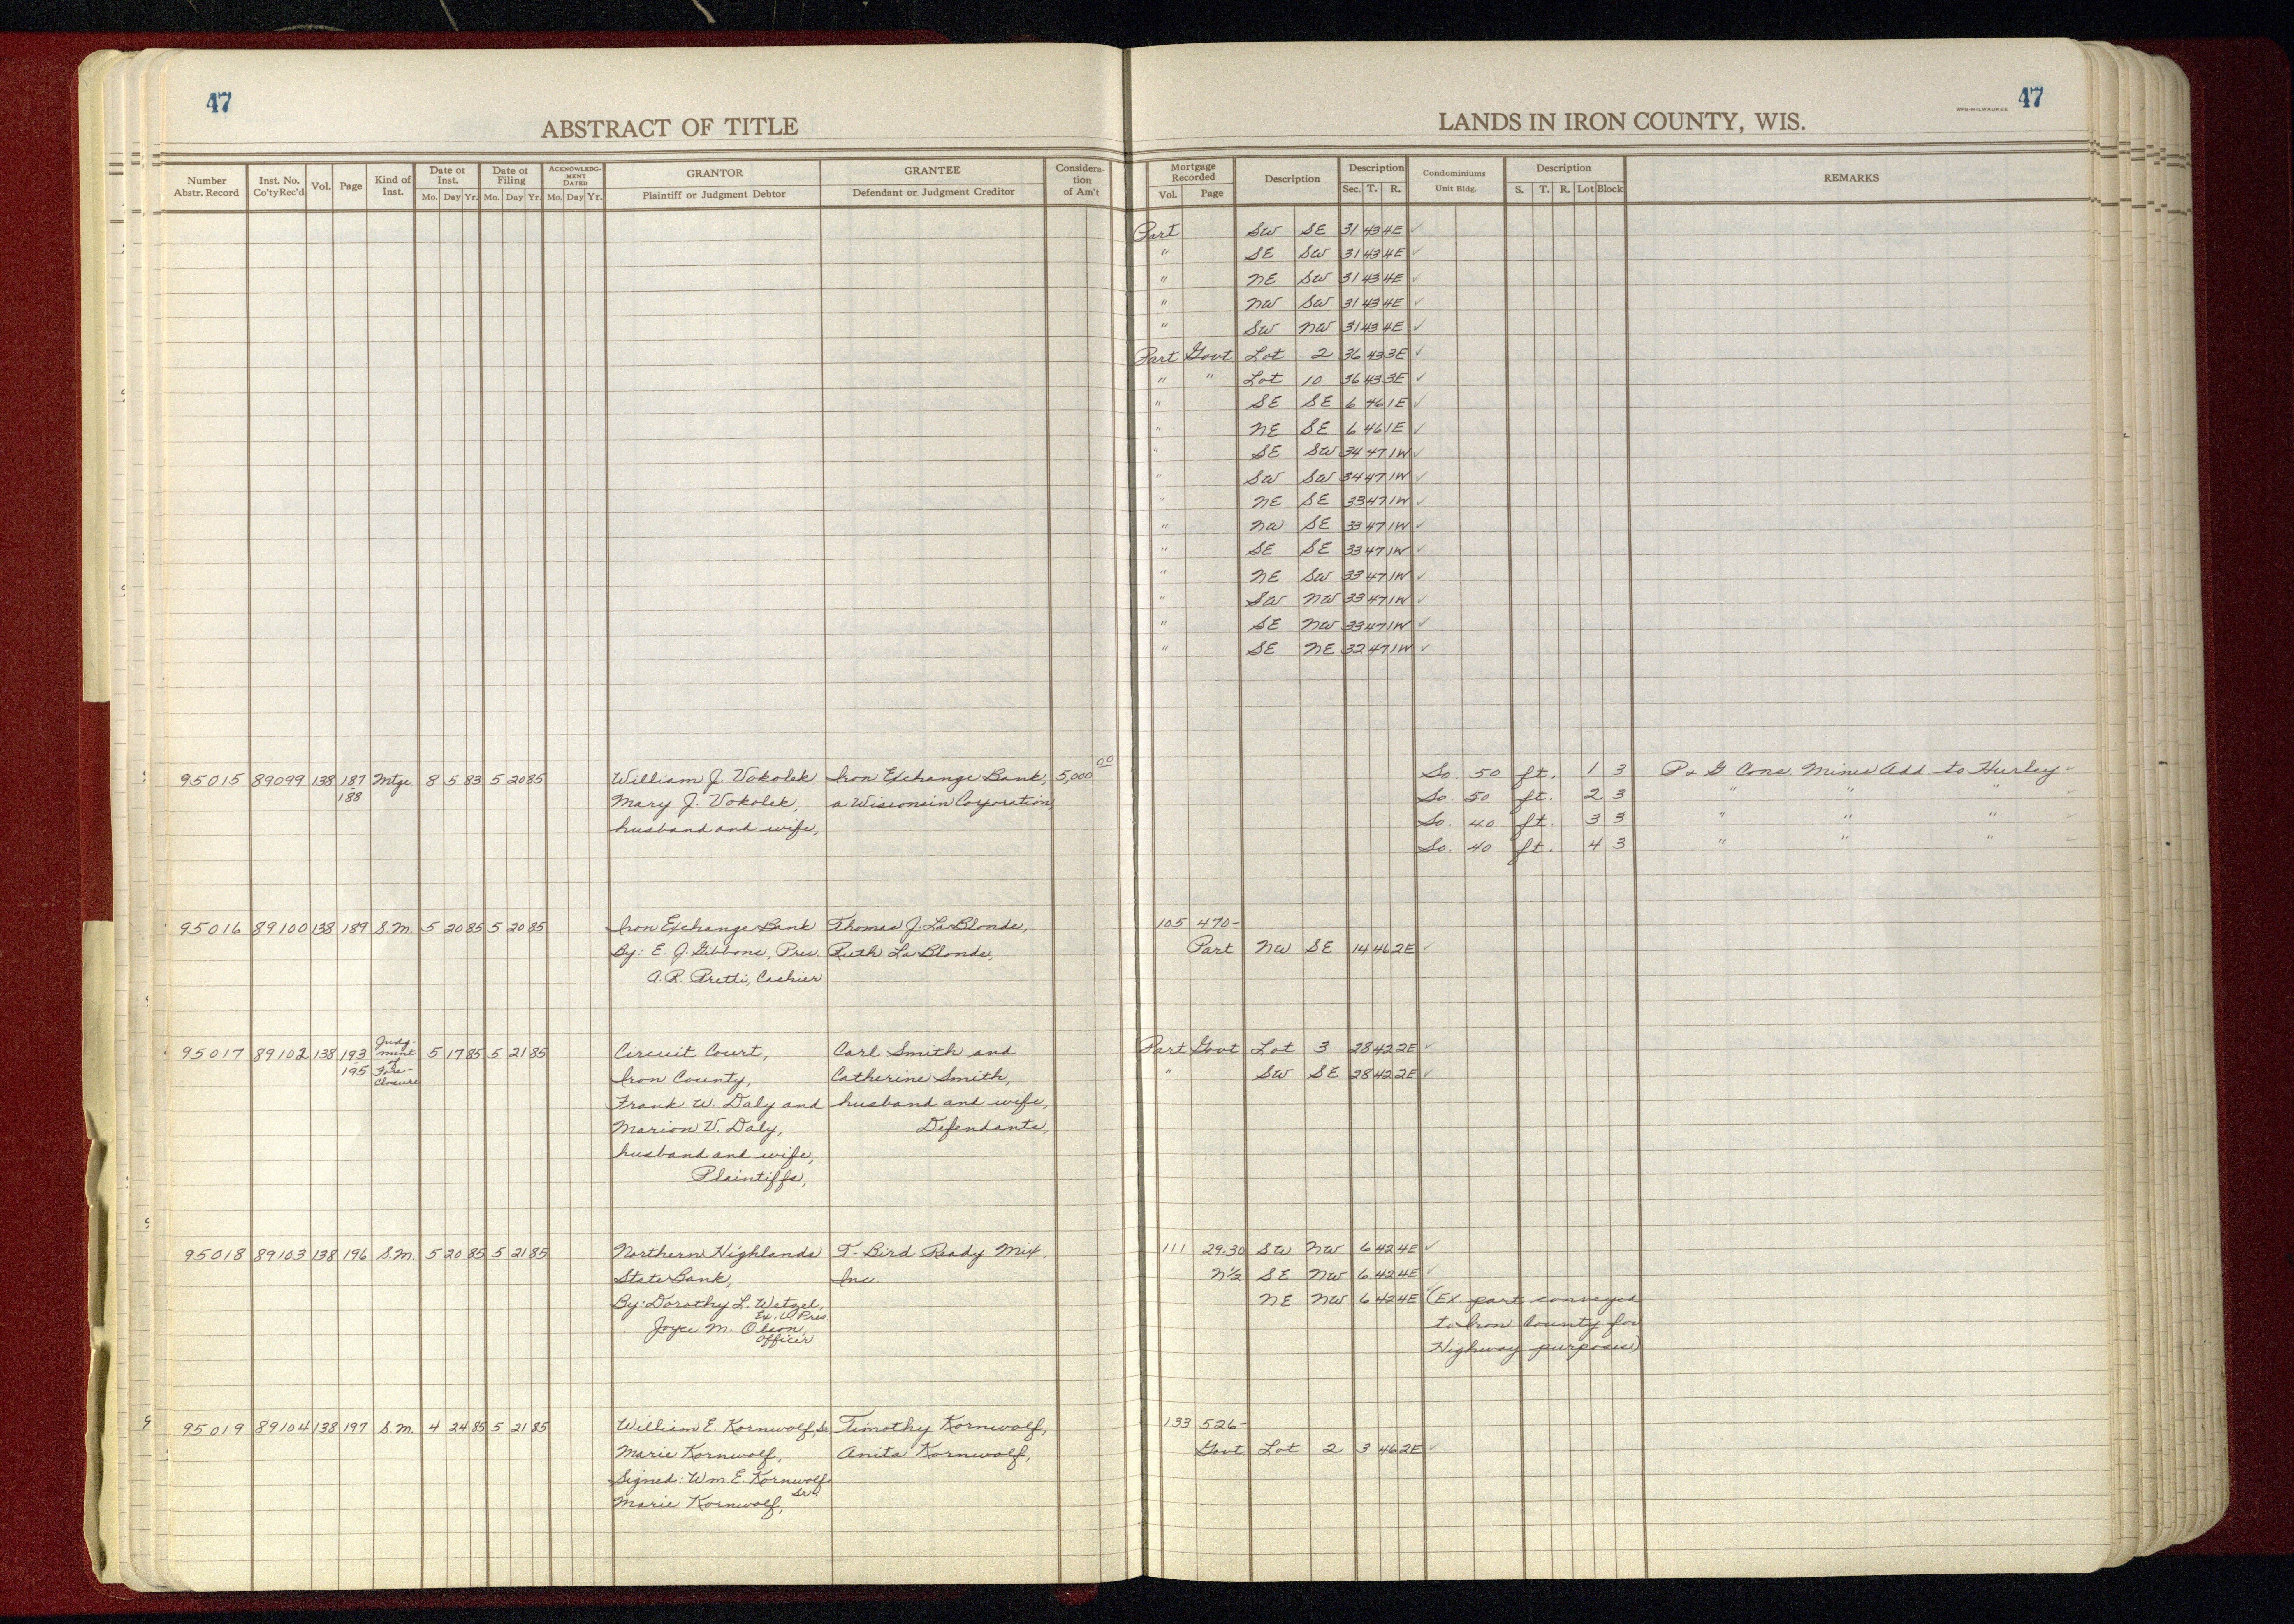 47
ABSTRACT OF TITLE
LANDS IN IRON COUNTY, WIS.
WPB-MILWAUKEE 47
Number Abstr. Record | Inst. No. Co'ty Rec'd | Vol. | Page | Kind of Inst. | Date of Inst. Mo. Day Yr. | Date of Filing Mo. Day Yr. | ACKNOWLEDGMENT DATED Mo. Day Yr. | GRANTOR Plaintiff or Judgment Debtor | GRANTEE Defendant or Judgment Creditor | Consideration of Am't
Mortgage Recorded Vol. Page | Description | Description Sec. T. R. | Condominiums Unit Bldg. | Description S. T. R. Lot Block | REMARKS
Part SW SE 31 43 4E ✓
" SE SW 31 43 4E ✓
" NE SW 31 43 4E ✓
" NW SW 31 43 4E ✓
" SW NW 31 43 4E ✓
Part Govt. Lot 2 36 43 3E ✓
" " Lot 10 36 43 3E ✓
" SE SE 6 46 1E ✓
" NE SE 6 46 1E ✓
" SE SW 34 47 1W ✓
" SW SW 34 47 1W ✓
" NE SE 33 47 1W ✓
" NW SE 33 47 1W ✓
" SE SE 33 47 1W ✓
" NE SW 33 47 1W ✓
" SW NW 33 47 1W ✓
" SE NW 33 47 1W ✓
" SE NE 32 47 1W ✓
95015 89099 138 187-188 Mtge 8 5 83 5 20 85 William J. Vokolek Iron Exchange Bank, 5,000 00 So. 50 ft. 1 3 P & G Cons. Mines Add. to Hurley ✓
Mary J. Vokolek, a Wisconsin Corporation, So. 50 ft. 2 3 " " " ✓
husband and wife, So. 40 ft. 3 3 " " " ✓
So. 40 ft. 4 3 " " " ✓
95016 89100 138 189 S.M. 5 20 85 5 20 85 Iron Exchange Bank Thomas J. LaBlonde, 105 470-
By: E. J. Gibbons, Pres. Ruth La Blonde, Part NW SE 14 46 2E ✓
A. R. Pretti, Cashier
95017 89102 138 193-195 Judgment of Fore-closure 5 17 85 5 21 85 Circuit Court, Carl Smith and Part Govt Lot 3 28 42 2E ✓
Iron County, Catherine Smith, " SW SE 28 42 2E ✓
Frank W. Daly and husband and wife,
Marion V. Daly, Defendants,
husband and wife,
Plaintiffs,
95018 89103 138 196 S.M. 5 20 85 5 21 85 Northern Highlands T-Bird Ready Mix, 111 29-30 SW NW 6 42 4E ✓
State Bank, Inc. N½ SE NW 6 42 4E ✓
By: Dorothy L. Wetzel, Ex. V. Pres. NE NW 6 42 4E (Ex. part conveyed
Joyce M. Olson, Officer to Iron County for
Highway purposes)
95019 89104 138 197 S.M. 4 24 85 5 21 85 William E. Kornwolf, Sr. Timothy Kornwolf, 133 526-
Marie Kornwolf, Anita Kornwolf, Govt. Lot 2 3 46 2E ✓
Signed: Wm. E. Kornwolf Sr.
Marie Kornwolf,